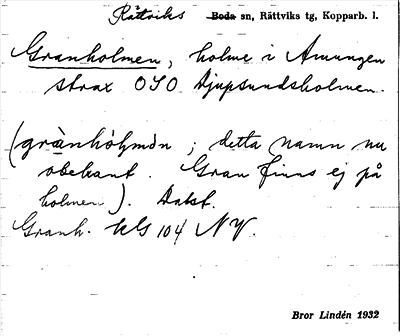 Rättviks Boda sn, Rättviks tg, Kopparb. l.
Granholmen, holme i Amungen
strax OSO Djupsundsholmen.
(grànhòḷmən ; detta namn nu
obekant. Gran finns ej på
holmen). Dalst.
Granh. kbl 104 NV.
Bror Lindén 1932